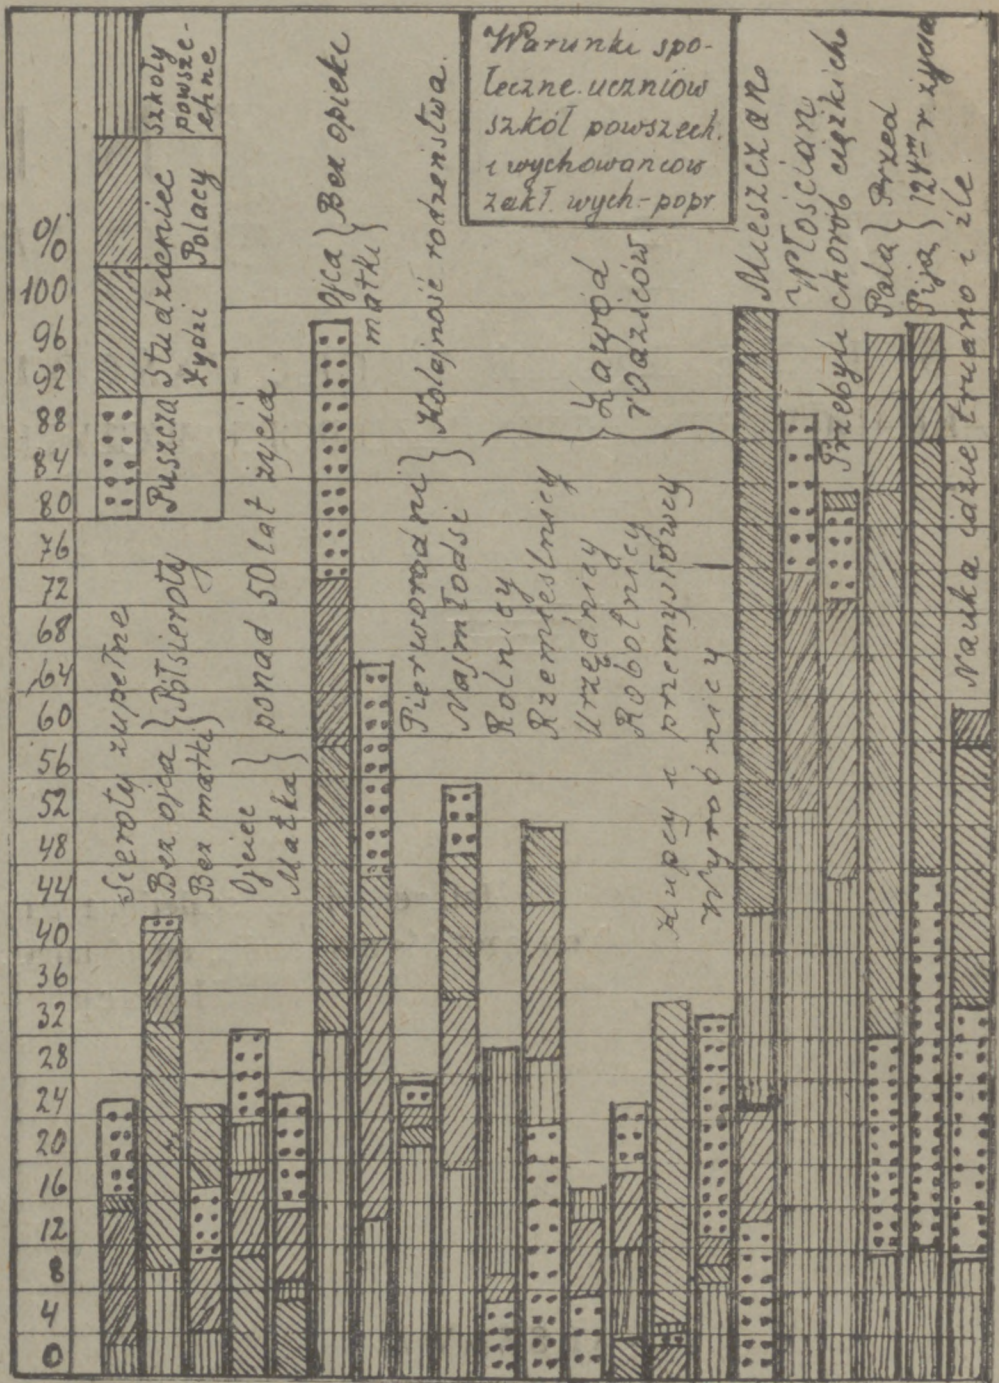 Warunki spo-
łeczne uczniów
szkół powszech.
i wychowanców
zakł. wych-popr
szkoły
powsze-
chne
Studzieniec
Polacy
Żydzi
Puszcza
%
100
96
92
88
84
80
76
72
68
64
60
56
52
48
44
40
36
32
28
24
20
16
12
8
4
0
Sieroty zupełne
Bez ojca } Półsieroty
Bez matki
Ojciec } ponad 50 lat życia.
Matka
Ojca } Bez opieki
matki
Pierworodni } Kolejność rodzeństwa.
Najmłodsi
Zawód
rodziców.
Rolnicy
Rzemieślnicy
Urzędnicy
Robotnicy
Kupcy i przemysłowcy
Wyrobnicy
Mieszczan
Włościan
Przebyli chorób ciężkich
Palą } Przed
Piją } 12ym r. życia
Nauka idzie trudno i źle.